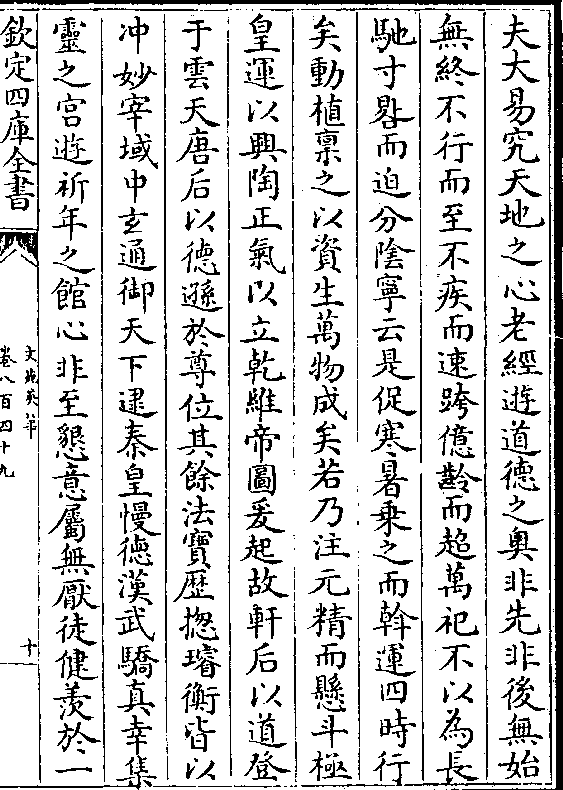 夫大易究天地之心老經遊道德之奥非先非後無始
無終不行而至不疾而速跨億齡而超萬祀不以為長
馳寸晷而迫分陰寧云是促寒暑乗之而斡運四時行
矣動植稟之以資生萬物成矣若乃注元精而懸斗極
皇運以興陶正氣以立乾維帝圖爰起故軒后以道登
于雲天唐后以德遜於尊位其餘法寶歴揔璿衡皆以
冲妙宰域中玄通御天下逮秦皇慢德漢武驕真幸集
靈之宫遊祈年之館心非至懇意屬無厭徒健羡於一
欽定四庫全書
文苑英華
卷八百四十九
十